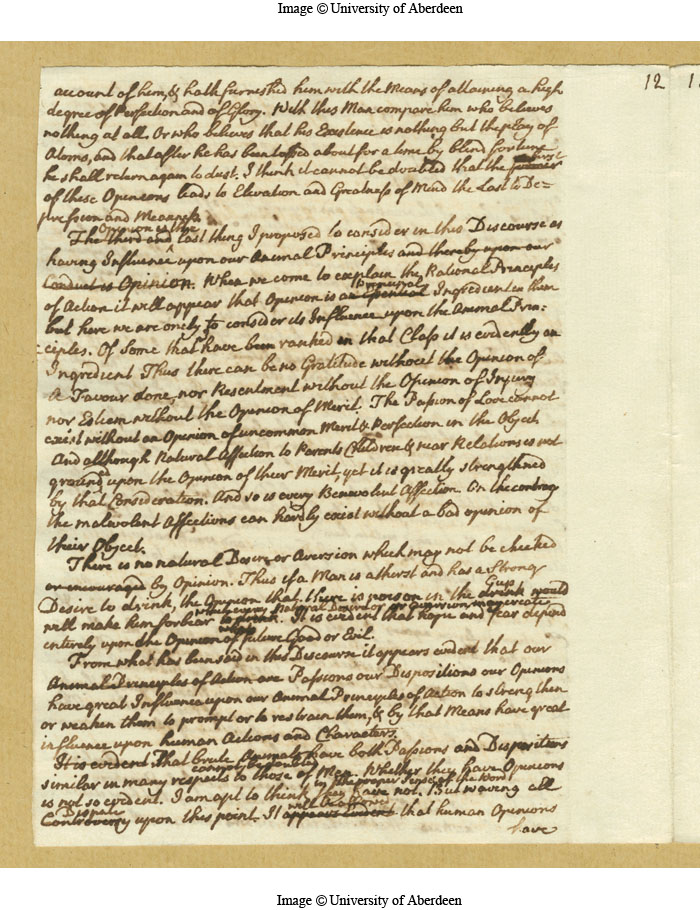 Image © University of Aberdeen
12
account of him, & hath furnished him with the Means of attaining a high
degree of Perfection and of Glory. With this Man compare him who believes
nothing at all. Or who believes that his Existence is nothing but the play of
Atoms, and that after he has been tossed about for a time by blind fortune
he shall return again to dust. I think it cannot be doubted that the former first
of these Opinions leads to Elevation and Greatness of Mind the Last to De=
pression and Meanness.
Opinion is the
The third and last thing I proposed to consider in this Discourse as
having Influence upon our Animal Principles and thereby upon our
Conduct is Opinion. When we come to explain the Rational Principles
of Action it will appear that Opinion is an essential Ingredient in them
but here we are onely to consider its Influence upon the Animal Prin=
ciples. Of Some that have been ranked in that Class it is evidently an
Ingredient Thus there can be no Gratitude without the Opinion of
a Favour done, nor Resentment without the Opinion of Injury
nor Esteem without the Opinion of Merit. The Passion of Love cannot
exist without an Opinion of uncommon Merit & Perfection in the Object.
And although Natural Affection to Parents Children & near Relations is not
grounded upon the Opinion of their Merit, yet it is greatly strengthened
by that Consideration. And so is every Benevolent Affection. On the contrary
the malevolent Affections can hardly exist without a bad opinion of
their Object.
There is no natural Desire or Aversion which may not be checked
or encouraged by Opinion. Thus if a Man is athirst and has a Strong
Desire to drink, the Opinion that there is poison in the drink Cup would
will make him forbear to drink. It is evident that hope and fear depend
which every Natural Desire or or Aversion may create
entirely upon the Opinion of future Good or Evil.
From what has been said in this Discourse it appears evident that our
Animal Principles of Action our Passions our Dispositions our Opinions
have great Influence upon our Animal Principles of Action to strengthen
or weaken them to prompt or to restrain them, & by that Means have great
influence upon human Actions and Characters.
It is evident That brute Animals have both Passions and Dispositions
cannot be doubted
similar in many respects to those of Men. Whether they have Opinions
in the proper Sense of the Word
is not so evident. I am apt to think they have not. But waving all
Dispute will be allowed
Controversy upon this point. It appears evident that human Opinions
have
Image © University of Aberdeen